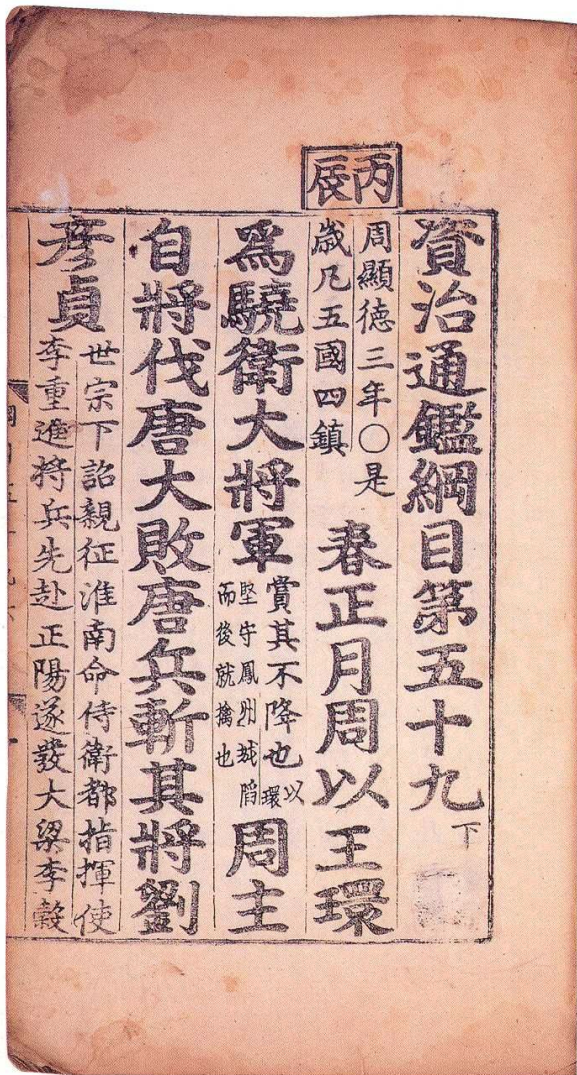 丙辰
資治通鑑綱目第五十九下
周顯德三年○是
歲凡五國四鎮
春正月周以王環
爲驍衛大將軍
賞其不降也以環
堅守鳳州城陷
而後就擒也
周主
自將伐唐大敗唐兵斬其將劉
彥貞
世宗下詔親征淮南命侍衛都指揮使
李重進將兵先赴正陽遂發大梁李穀